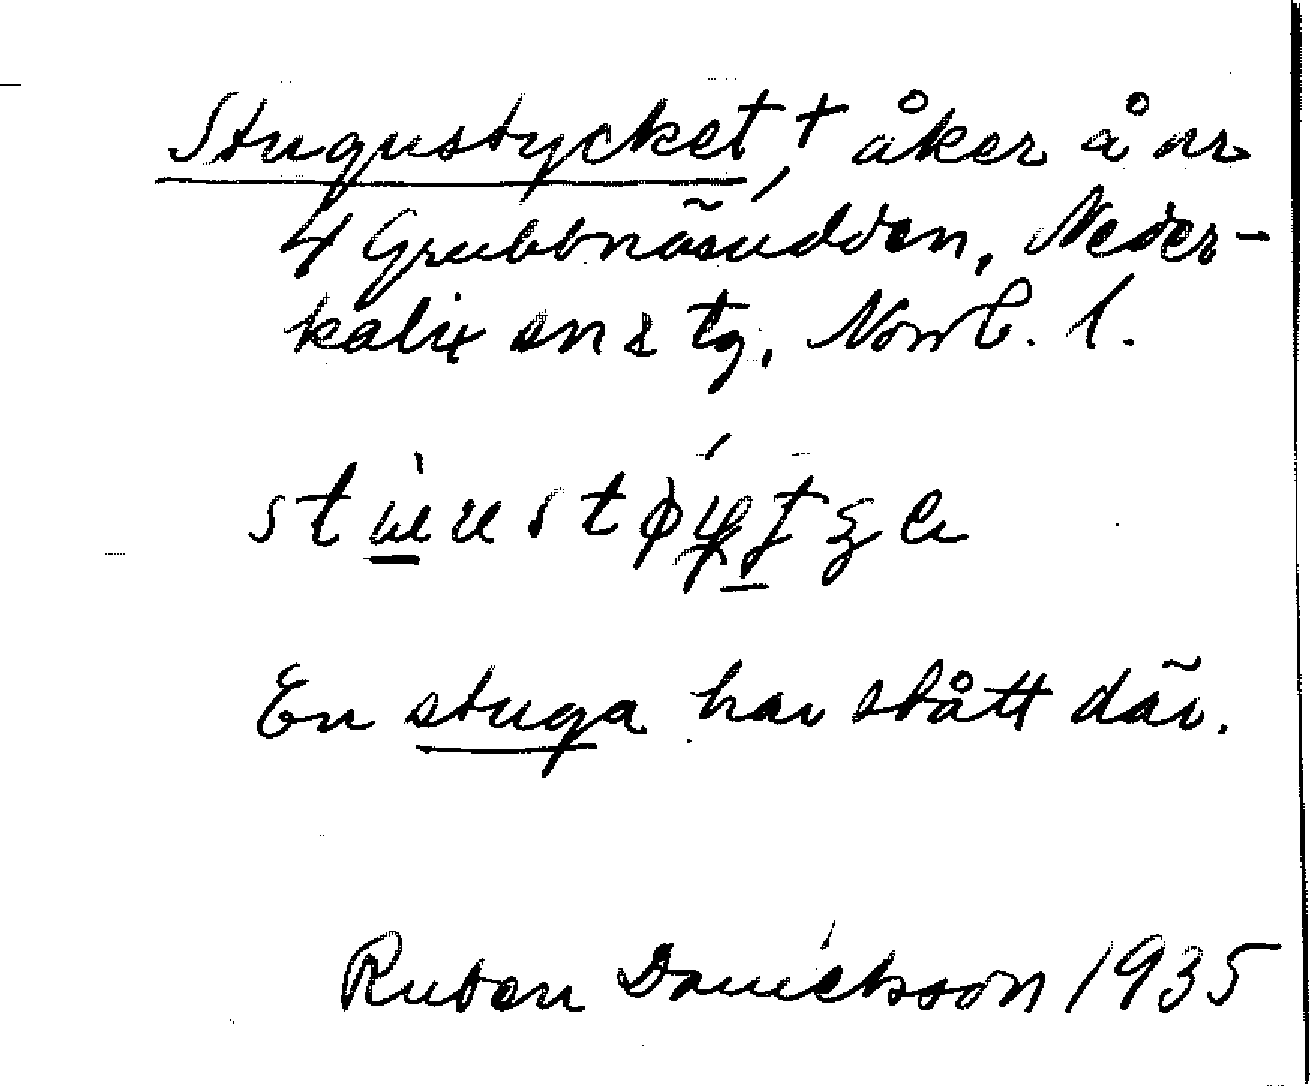 Stugustycket,† åker å nr
4 Grubbnäsudden, Neder-
kalix sns tg, Norrb. l.
En stuga har stått där.
Ruben Danielsson 1935